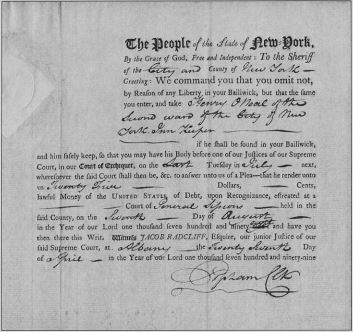 The People of the State of New-York,
By the Grace of God, Free and Independent: To the Sheriff
of the City and County of New York —
Greeting: We command you that you omit not,
by Reason of any Liberty, in your Bailiwick, but that the same
you enter, and take Henry O Neal of the
Second ward of the City of New
York Inn Keeper
if he shall be found in your Bailiwick,
and him safely keep, so that you may have his Body before one of our Justices of our Supreme
Court, in our Court of Exchequer, on the Last Tuesday in July next,
wheresoever the said Court shall then be, &c. to answer unto us of a Plea—that he render unto
us Twenty Dollars, — Cents,
lawful Money of the UNITED STATES, of Debt, upon Recognizance, estreated at a
Court of General Sessions held in the
said County, on the Seventh Day of August
in the Year of our Lord one thousand seven hundred and ninety and have you
then there this Writ. Witness JACOB RADCLIFF, Esquire, our junior Justice of our
said Supreme Court, at Albany the Twenty Seventh Day
of April — in the Year of our Lord one thousand seven hundred and ninety-nine
Clk